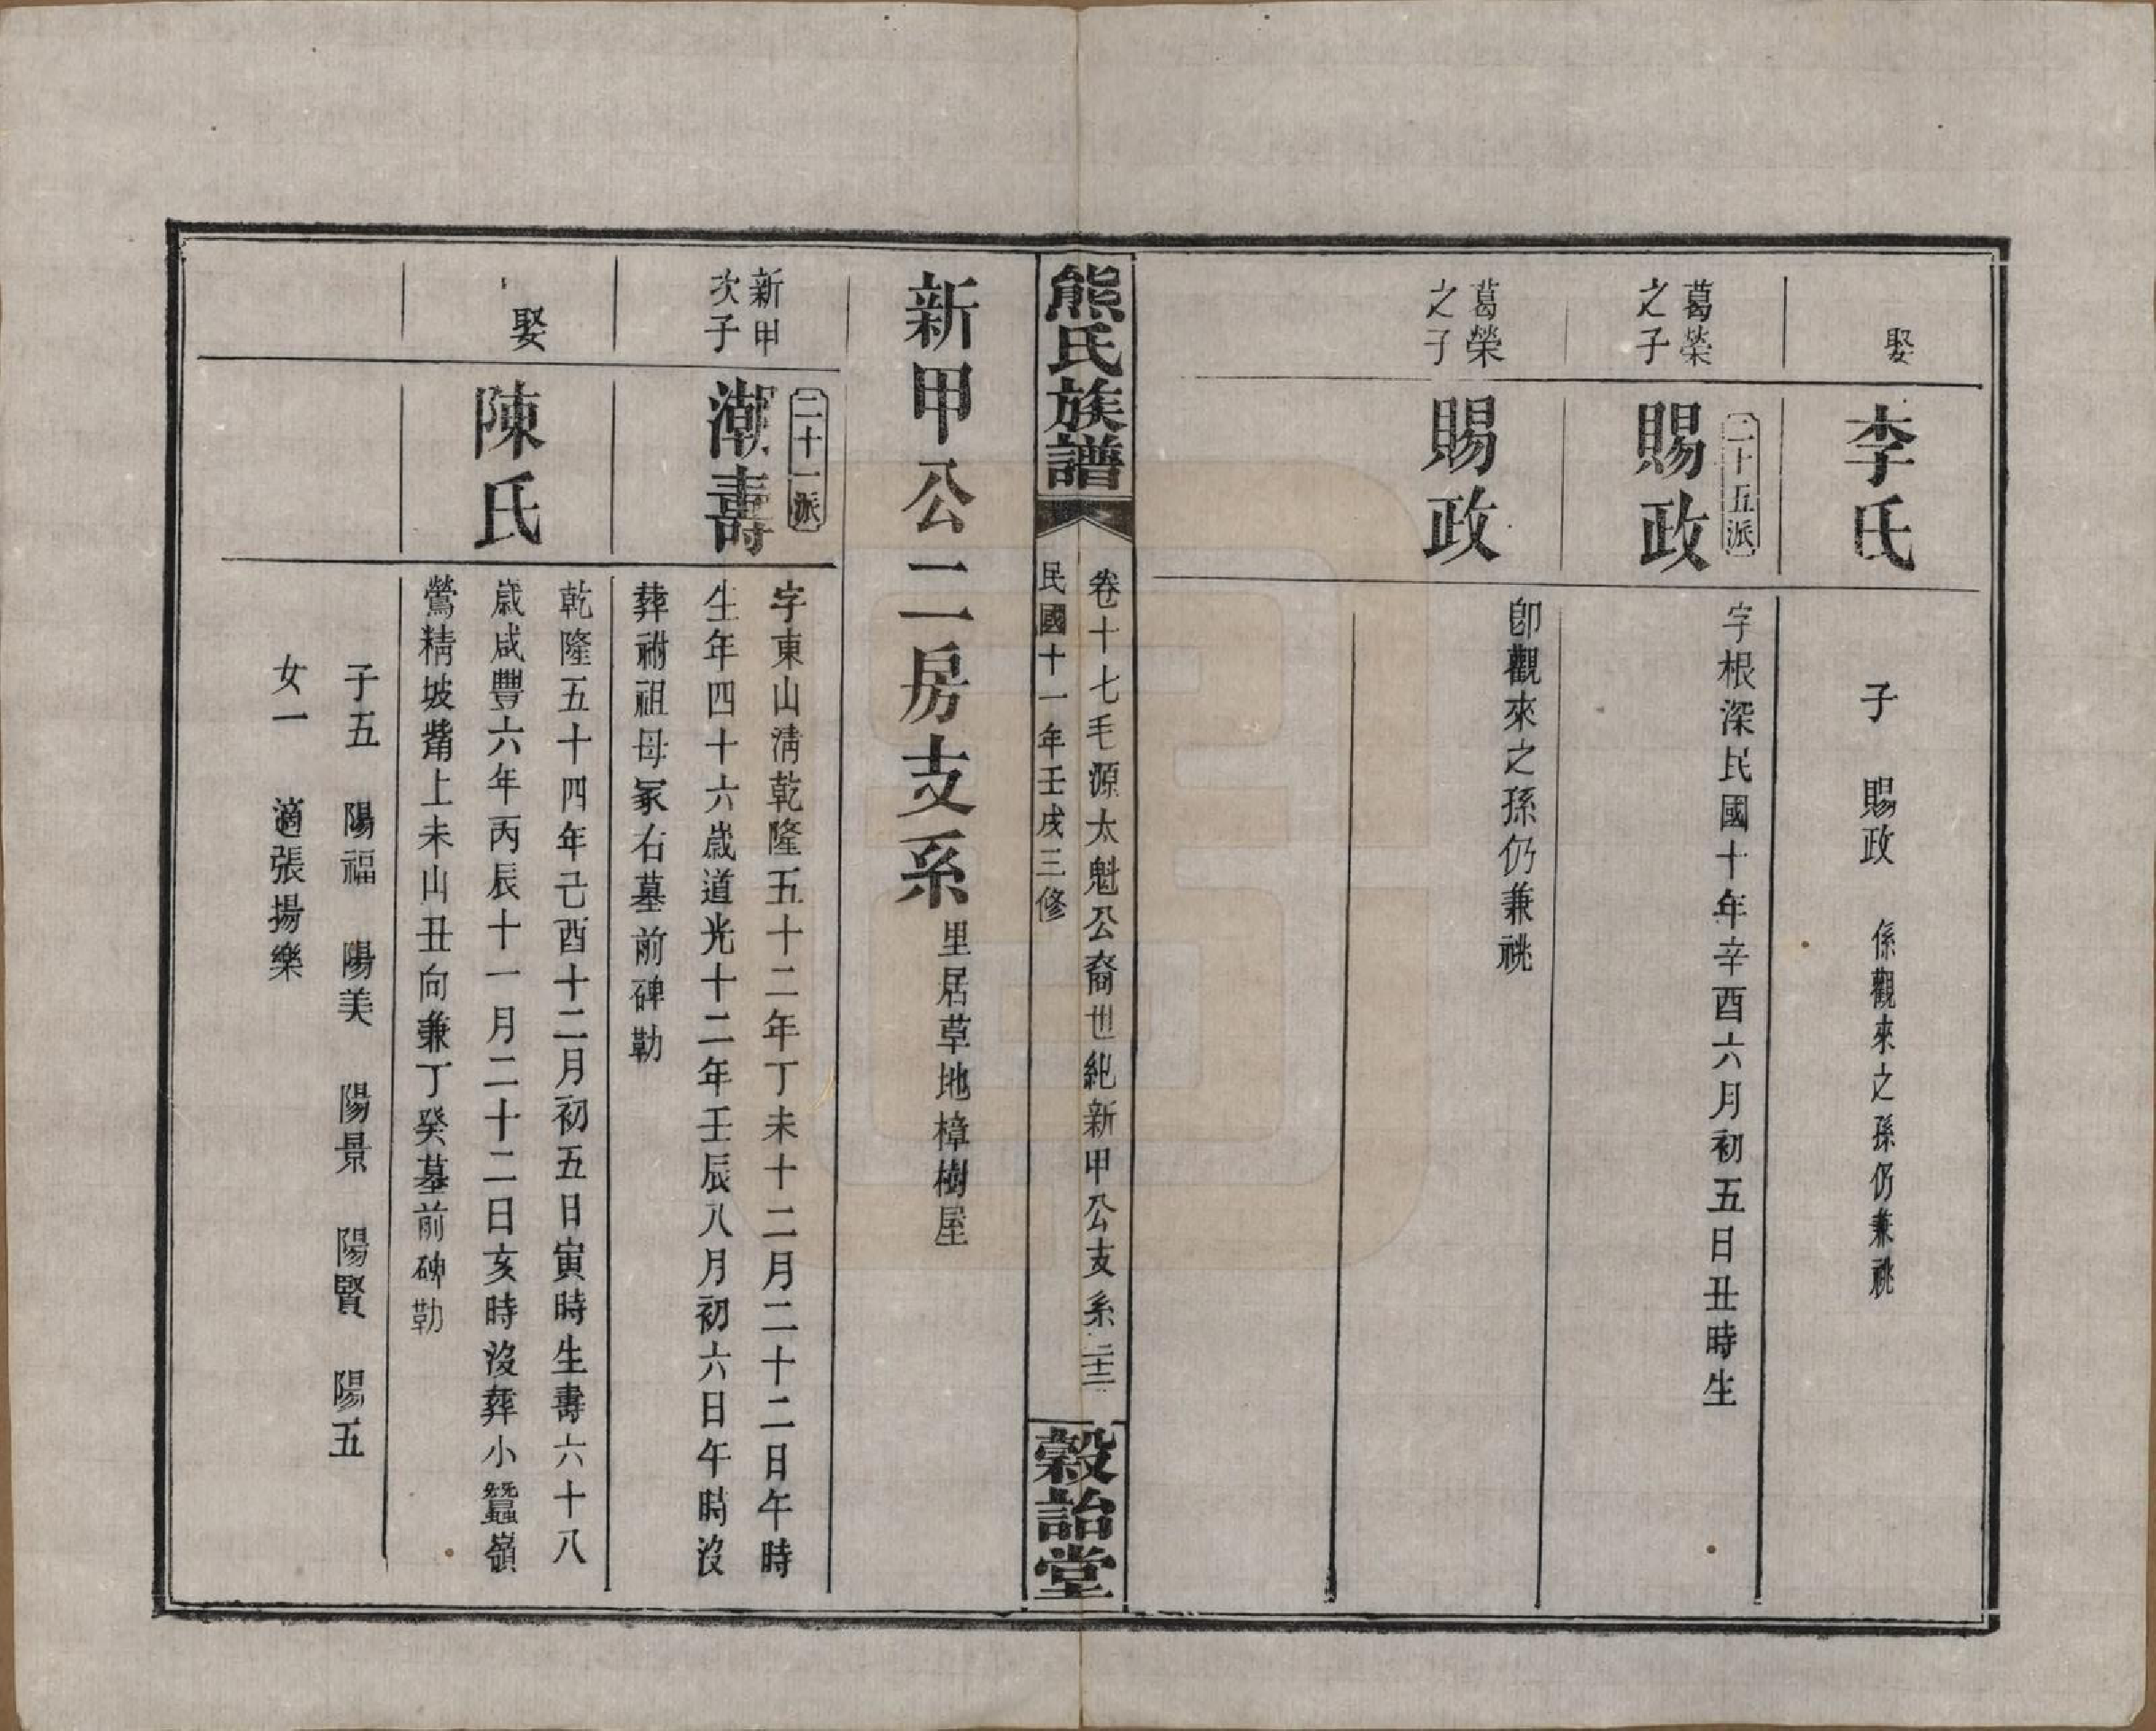 娶
李氏
子 賜政 係觀來之孫仍兼祧
葛榮
之子
二十五派
賜政
字根深民國十年辛酉六月初五日丑時生
葛榮
之子
賜政
卽觀來之孫仍兼祧
熊氏族譜
卷十七毛源太魁公裔世紀新甲公支系
民國十一年壬戌三修
穀詒堂
新甲公二房支系
里居草地樟樹屋
新甲
次子
二十一派
潮壽
字東山淸乾隆五十二年丁未十二月二十二日午時
生年四十六歲道光十二年壬辰八月初六日午時沒
葬祔祖母冢右墓前碑勒
娶
陳氏
乾隆五十四年己酉十二月初五日寅時生壽六十八
歲咸豐六年丙辰十一月二十二日亥時沒葬小蠶嶺
鶯精坡觜上未山丑向兼丁癸墓前碑勒
子五 陽福 陽美 陽景 陽賢 陽五
女一 適張揚樂